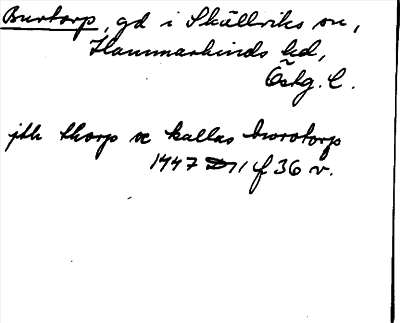 Burtorp, gd i Skällviks sn,
Hammarkinds hd,
Östg. l.
jtk thorp sc kallas burotorp
1447 D 11 f 36 v.